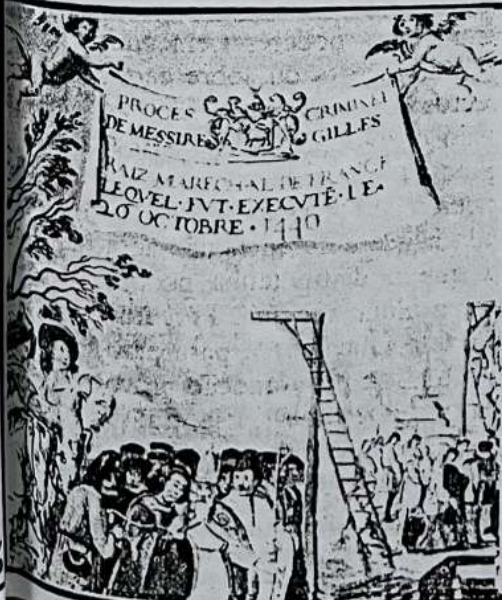 PROCES CRIMINEL
DE MESSIRE GILLES
RAIZ MARECHAL DE FRANCE
LEQVEL·FVT·EXECVTÉ·LE·
26 OCTOBRE·1440